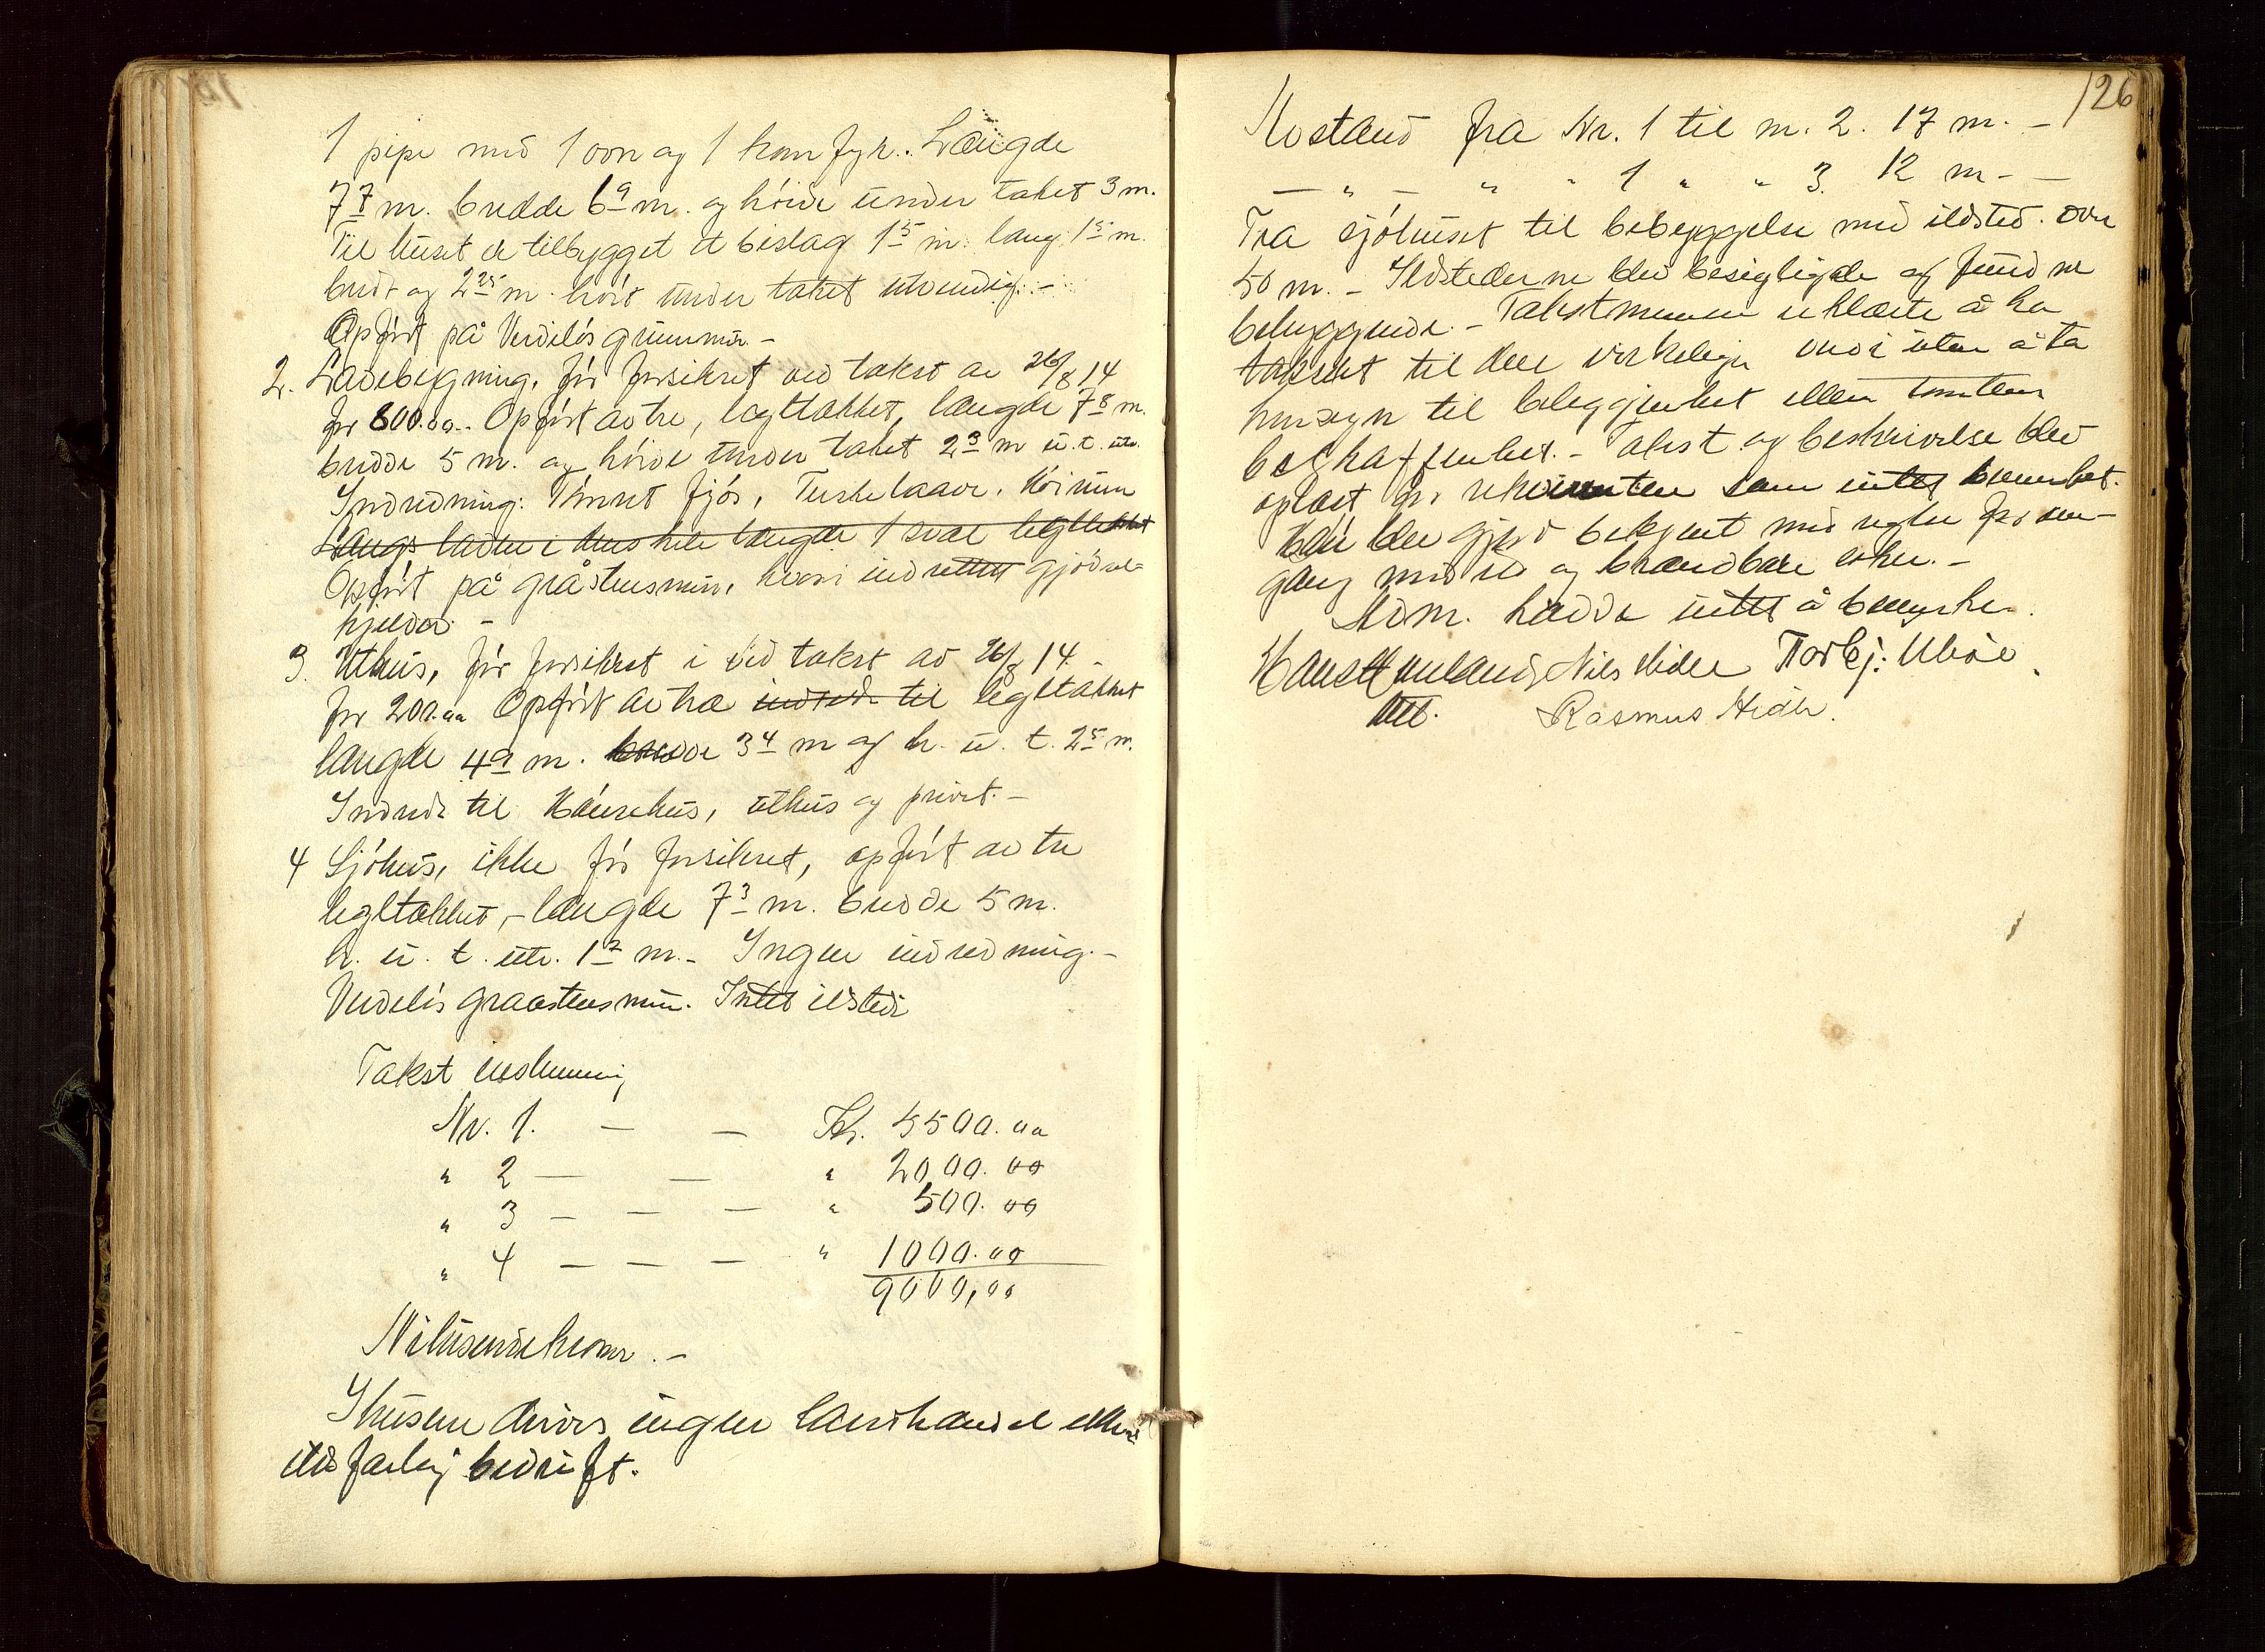 1 pipe med 1 ovn og 1 komfyr. Længde
7 7 m. bredde 6 9 m. og høide under taket 3 m.
Til huset er tilbygget et bislag 1 5 m. lang 1 5 m.
bred og 2 25 m. høit under taket utvendig. -
Opført på Verdiløs grunnmur -
2. Ladebygning, før forsikret ved takst av 26/8 14
for 800.00. Opført av tre, tegltækket, længde 7 8 m.
bredde 5 m. og høide under taket 2 3 m u. t. utv.
Indredning: Tømret fjøs, Treskelaave, Høirum
Langs laden i dens hele længde 1 sval tegltekket
Opført på gråstensmur, hvori indrettet gjødsel-
kjelder. -
3. Uthus, før forsikret i ved takst av 26/8 14 -
for 200.00 Opført av træ indredet til tegltækket
længde 4 9 m. bredde 3 4 m og h. u. t. 2 5 m.
Indredet til Hønsehus, uthus og privet. -
4 Sjøhus, ikke før forsikret, opført av tre
tegltækket, - længde 7 3 m. bredde 5 m.
h. u. t. utv. 1 7 m. - Ingen indredning. -
Verdiløs graastensmur. Intet ildsted
Takst
Nr. 1. - - Kr. 5500.00
" 2 - - " 2000.00
" 3 - - - " 500.00
" 4 - - - " 1000.00
9000,00
Nitusenkroner. -
I husene drives ingen landhandel eller
ildsfarlig bedrift.
126
Avstand fra Nr. 1 til nr. 2. 17 m. -
- " - " " 1 " " 3. 12 m - -
Fra sjøhuset til bebyggelse med ildsted over
50 m. - Ildstederne blev besigtiget og funnet
betryggende. - Takstmennen erklærte å ha
taksert til den virkelige verdi uten å ta
hensyn til beliggenhet eller tomtens
beskaffenhet. - Takst og beskrivelse blev
oplæst for rekvirenten som intet bemerket.
Han blev gjort bekjent med regler for om-
gang med ild og brandbare saker. -
Adm. hadde intet å bemerke.
Hans Nils Hidle Torbj:
Rasmus Hidle.